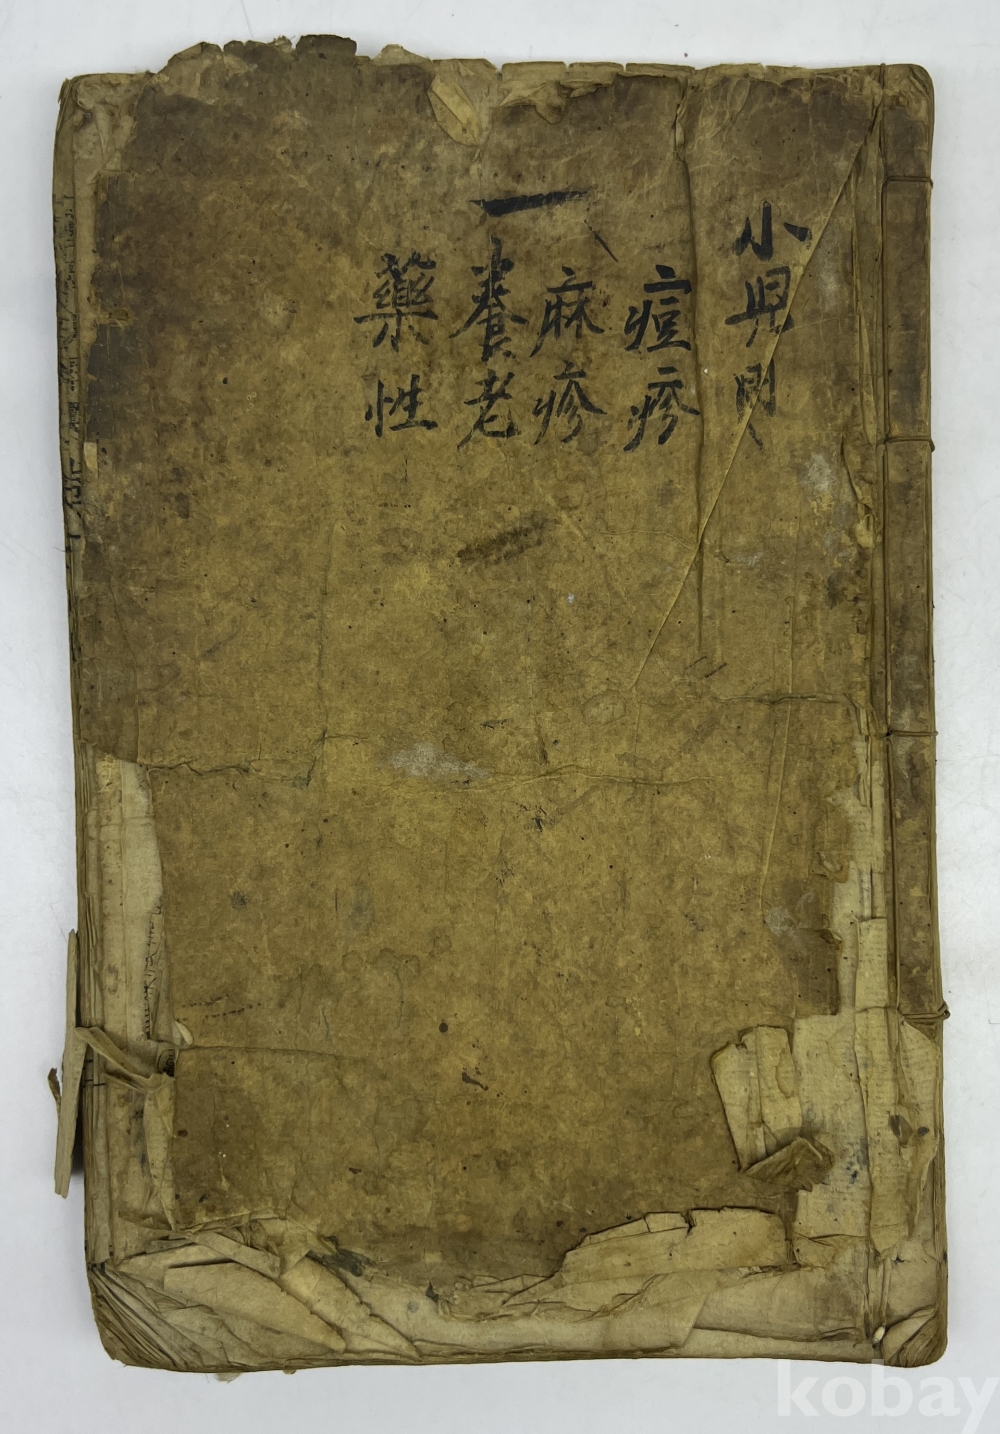 小兒門
痘疹
麻疹
一 養老
藥性
kobay